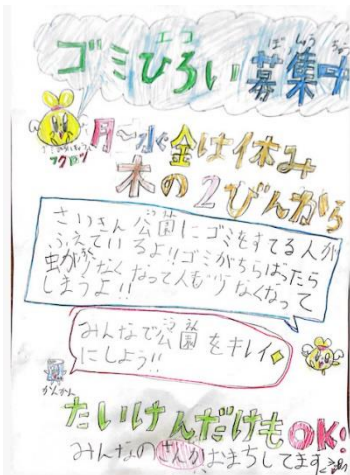 エコ
ゴミひろい募集中
ぼしゅうちゅう
月〜水金は休み
木の2びんから
さいきん公園にゴミをすてる人が
ふえているよ!!ゴミがちらばったら
虫が少なくなって人も少なくなって
しまうよ!!
みんなで公園をキレイ
にしよう!!
たいけんだけもOK!
みんなのさんかおまちしてます